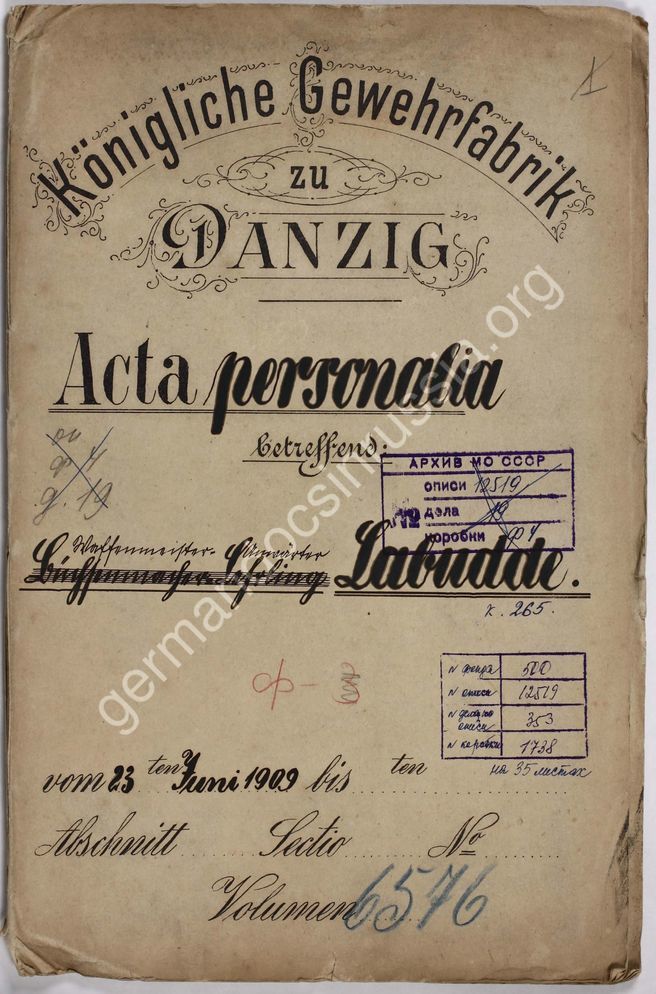 1
Königliche Gewehrfabrik
zu
DANZIG
Acta personalia
betreffend:
оп
ф 4
д. 19
АРХИВ МО СССР
описи 12519
№ дела 19
коробки ф 4
Waffenmeister-Anwärter
Büchsenmacher-Lehrling Labudde.
к. 265.
ф-
N фонда 500
N описи 12519
N дела по описи 353
N коробки 1738
на 35 листах
vom 23 ten Juni 1909 bis ten
Abschnitt Sectio No
Volumen 6576
germandocsinrussia.org